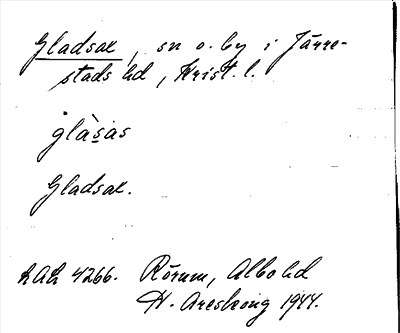 Gladsax, sn o. by i Järre-
stads hd, Krist. l.
glàsas
Gladsax.
LAL 4266. Rörum, Albo hd
H. Areskoug 1944.